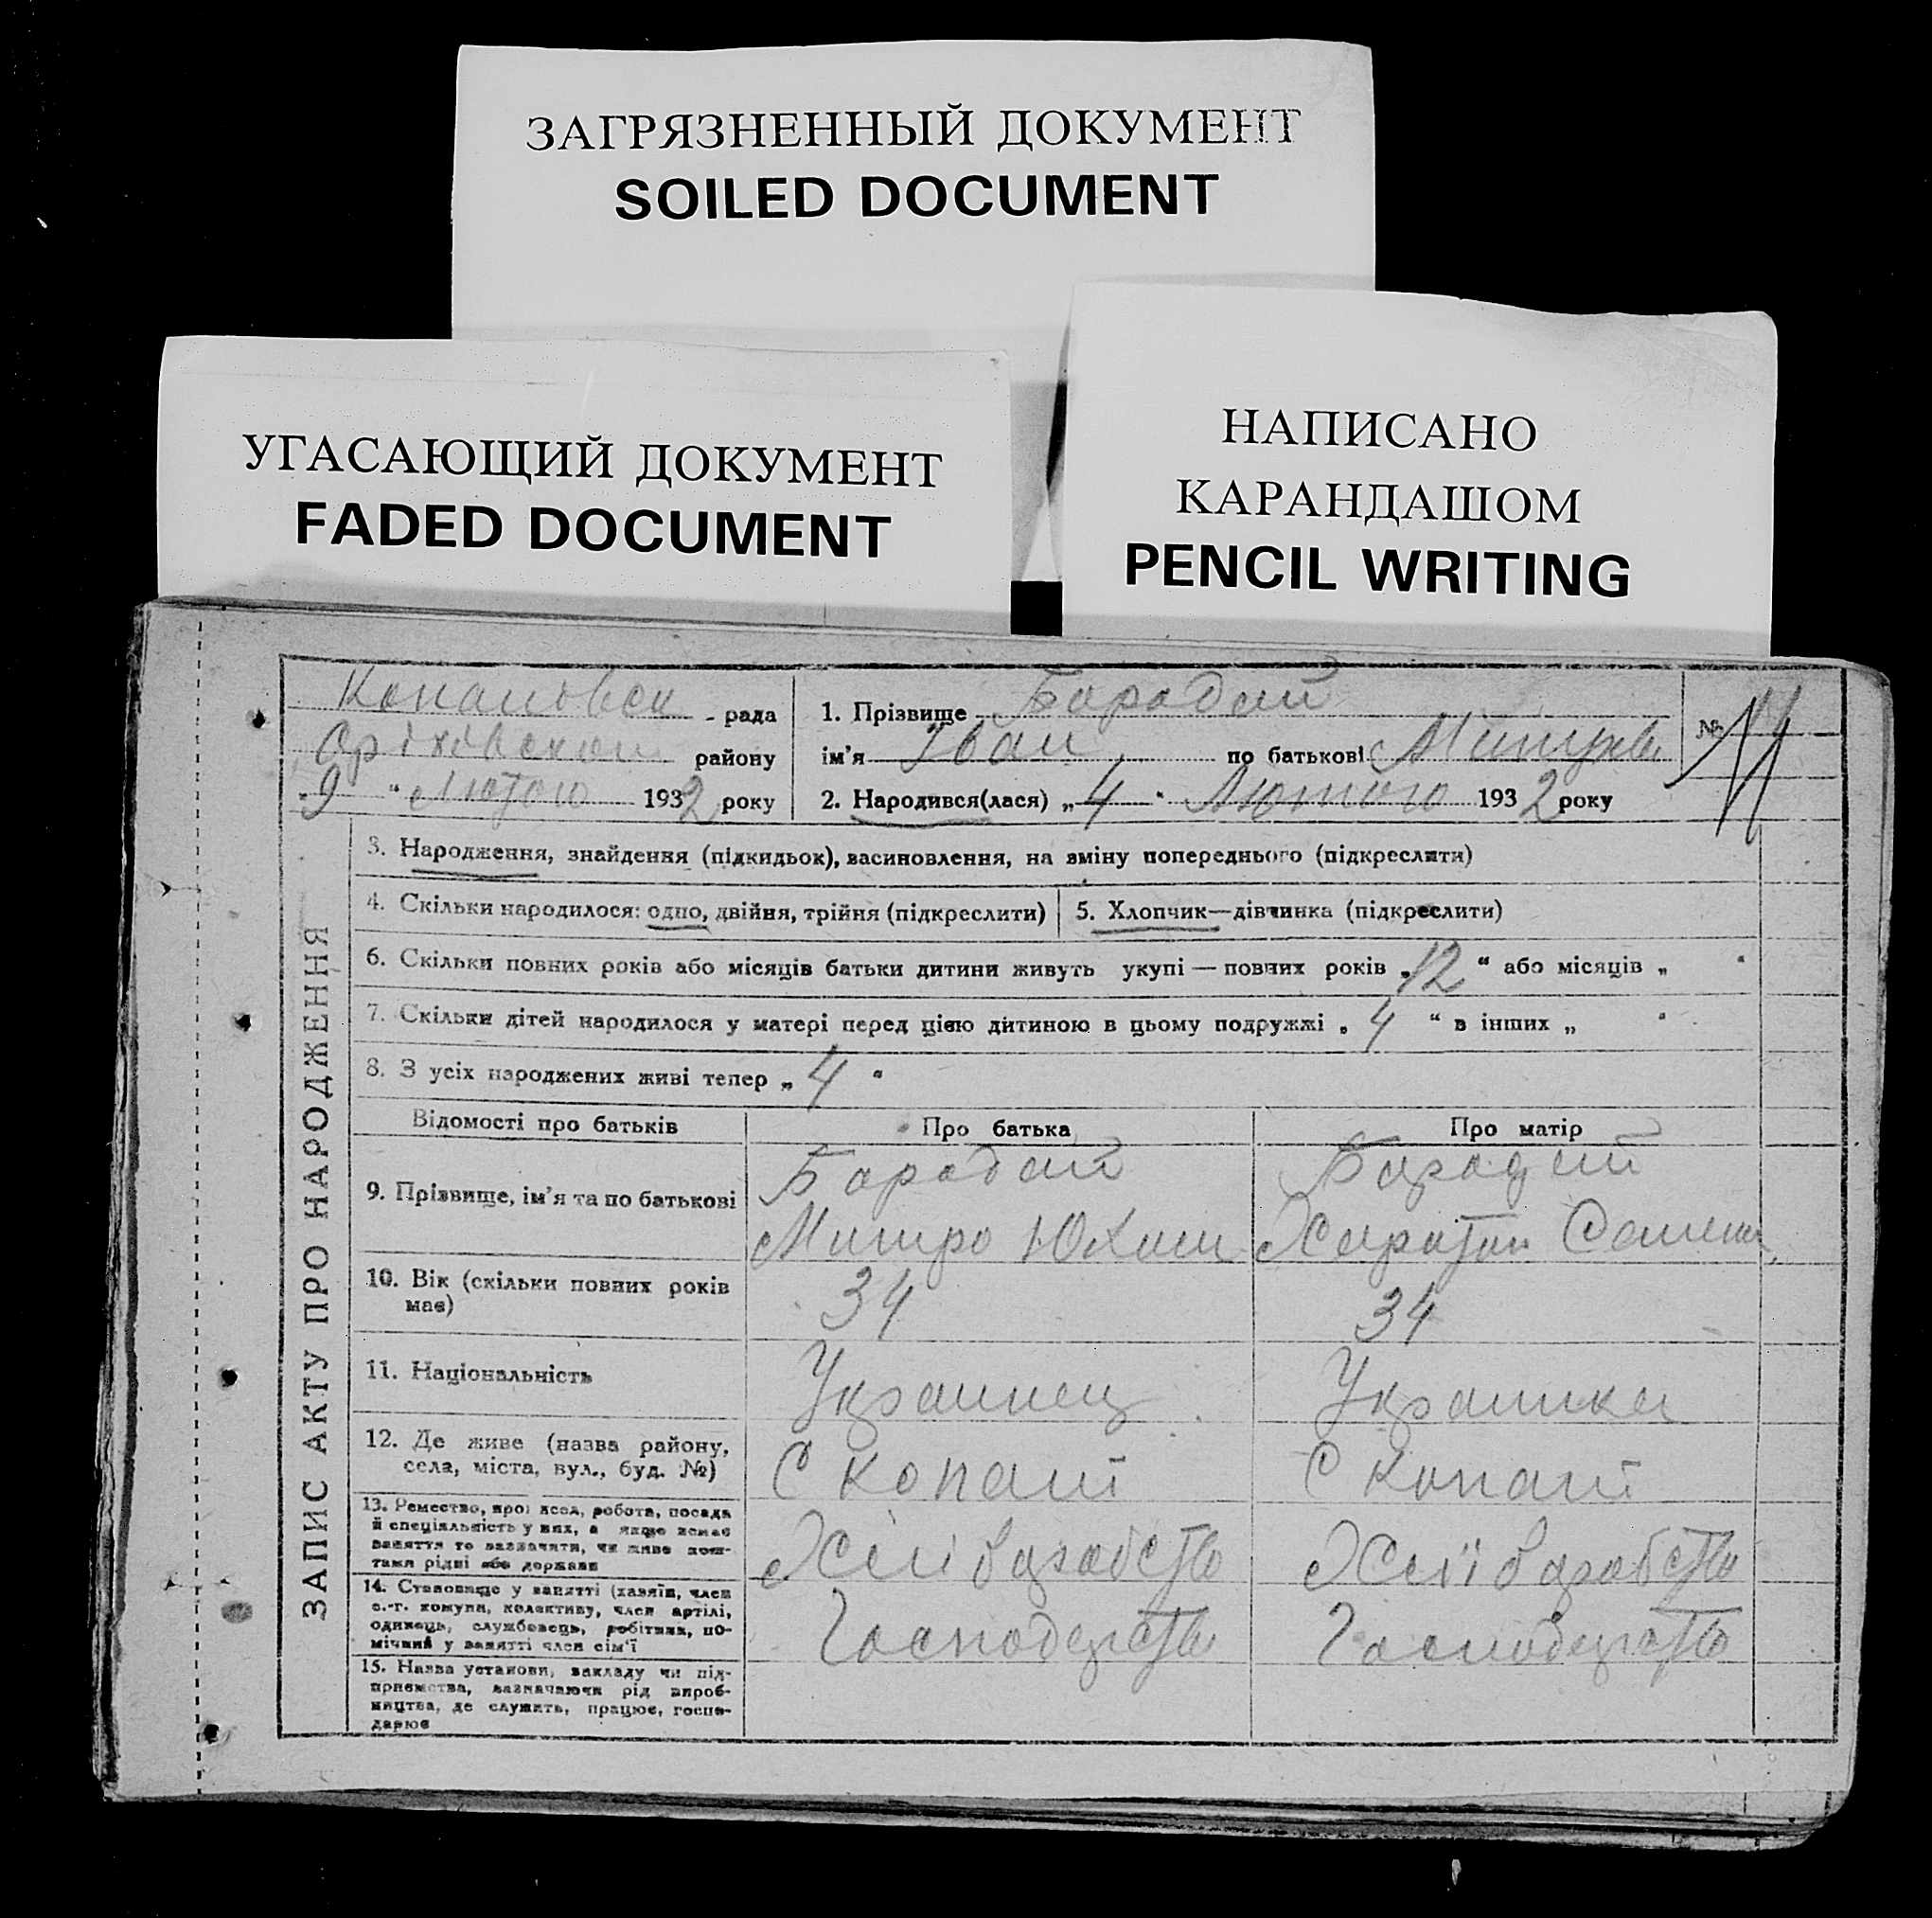 ЗАГРЯЗНЕННЫЙ ДОКУМЕНТ
SOILED DOCUMENT
УГАСАЮЩИЙ ДОКУМЕНТ
FADED DOCUMENT
НАПИСАНО
КАРАНДАШОМ
PENCIL WRITING
рада
району
"9" Лютого 1932 року
1. Прізвище Бородай
ім'я Іван по батькові
2. Народився(лася) „4" Лютого 1932 року
№ 11
ЗАПИС АКТУ ПРО НАРОДЖЕННЯ
3. Народження, знайдення (підкидьок), васиновлення, на зміну попереднього (підкреслити)
4. Скільки народилося: одно, двійня, трійня (підкреслити)
5. Хлопчик—дівчинка (підкреслити)
6. Скільки повних років або місяців батьки дитини живуть укупі — повних років „12" або місяців „ "
7. Скільки дітей народилося у матері перед цією дитиною в цьому подружжі „4" в інших „ "
8. З усіх народжених живі тепер „4"
Відомості про батьків
Про батька
Про матір
9. Прізвище, ім'я та по батькові
Бородай
Митро Юхим
Бородай
10. Вік (скільки повних років
має)
34
34
11. Національність
Украинец
Украинка
12. Де живе (назва району,
села, міста, вул., буд. №)
С Копані
С Копані
13. Ремество, професія, робота, посада
й спеціяльність у них, а якщо немає
заняття то зазначити, чи живе кош-
тами рідні або держави
14. Становище у занятті (хазяїн, член
с.-г. комуни, колективу, член артілі,
одинець, службовець, робітник, по-
мічний у занятті член сім'ї
15. Назва установи, закладу чи під-
приємства, зазначаючи рід вироб-
ництва, де служить, працює, госпо-
дарює